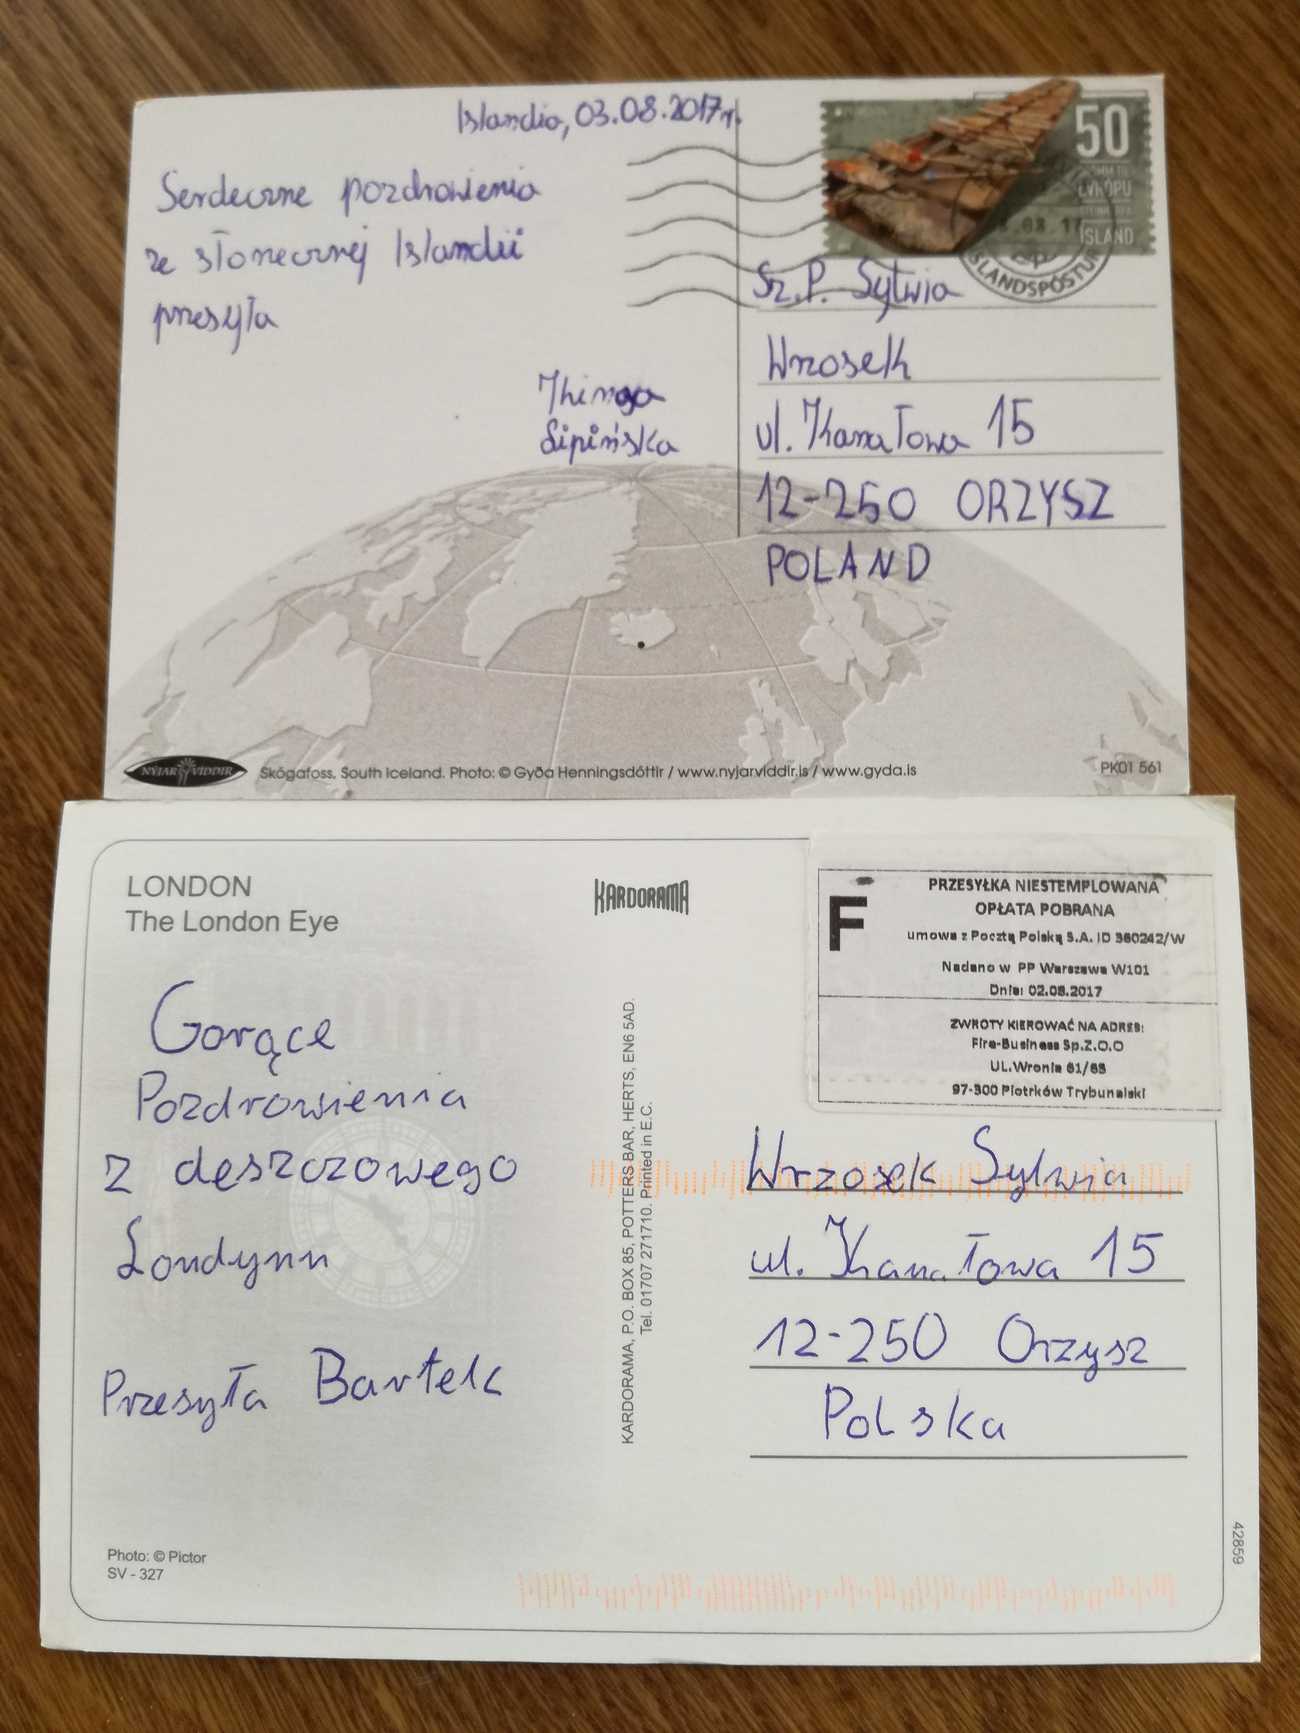 Islandia, 03.08.2017r.
Serdeczne pozdrowienia
ze słonecznej Islandii
przesyła
Kinga
Lipińska
50
EVRÓPU
ÍSLAND
08.17
ÍSLANDSPÓSTUR
Sz. P. Sylwia
Wrzosek
ul. Kanałowa 15
12-250 ORZYSZ
POLAND
NÝJAR VIDDIR
Skógafoss. South Iceland. Photo: © Gyða Henningsdóttir / www.nyjarviddir.is / www.gyda.is
PK01 561
LONDON
The London Eye
KARDORAMA
F
PRZESYŁKA NIESTEMPLOWANA
OPŁATA POBRANA
umowa z Pocztą Polską S.A. ID 360242/W
Nadano w PP Warszawa W101
Dnia: 02.08.2017
ZWROTY KIEROWAĆ NA ADRES:
Fire-Business Sp.Z.O.O
UL.Wronia 61/65
97-300 Piotrków Trybunalski
Gorące
Pozdrowienia
z deszczowego
Londynu
Przesyła Bartek
KARDORAMA, P.O. BOX 85, POTTERS BAR, HERTS, EN6 5AD.
Tel. 01707 271710. Printed in E.C.
Wrzosek Sylwia
ul. Kanałowa 15
12-250 Orzysz
Polska
Photo: © Pictor
SV - 327
42859